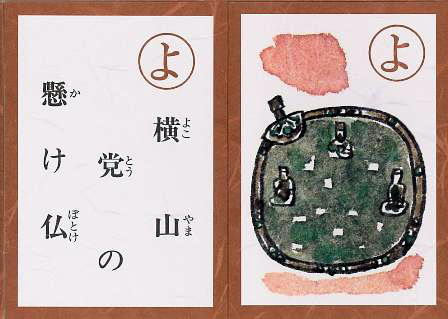 よ
横山
党の
懸け仏
よこ
やま
とう
か
ぼとけ
よ